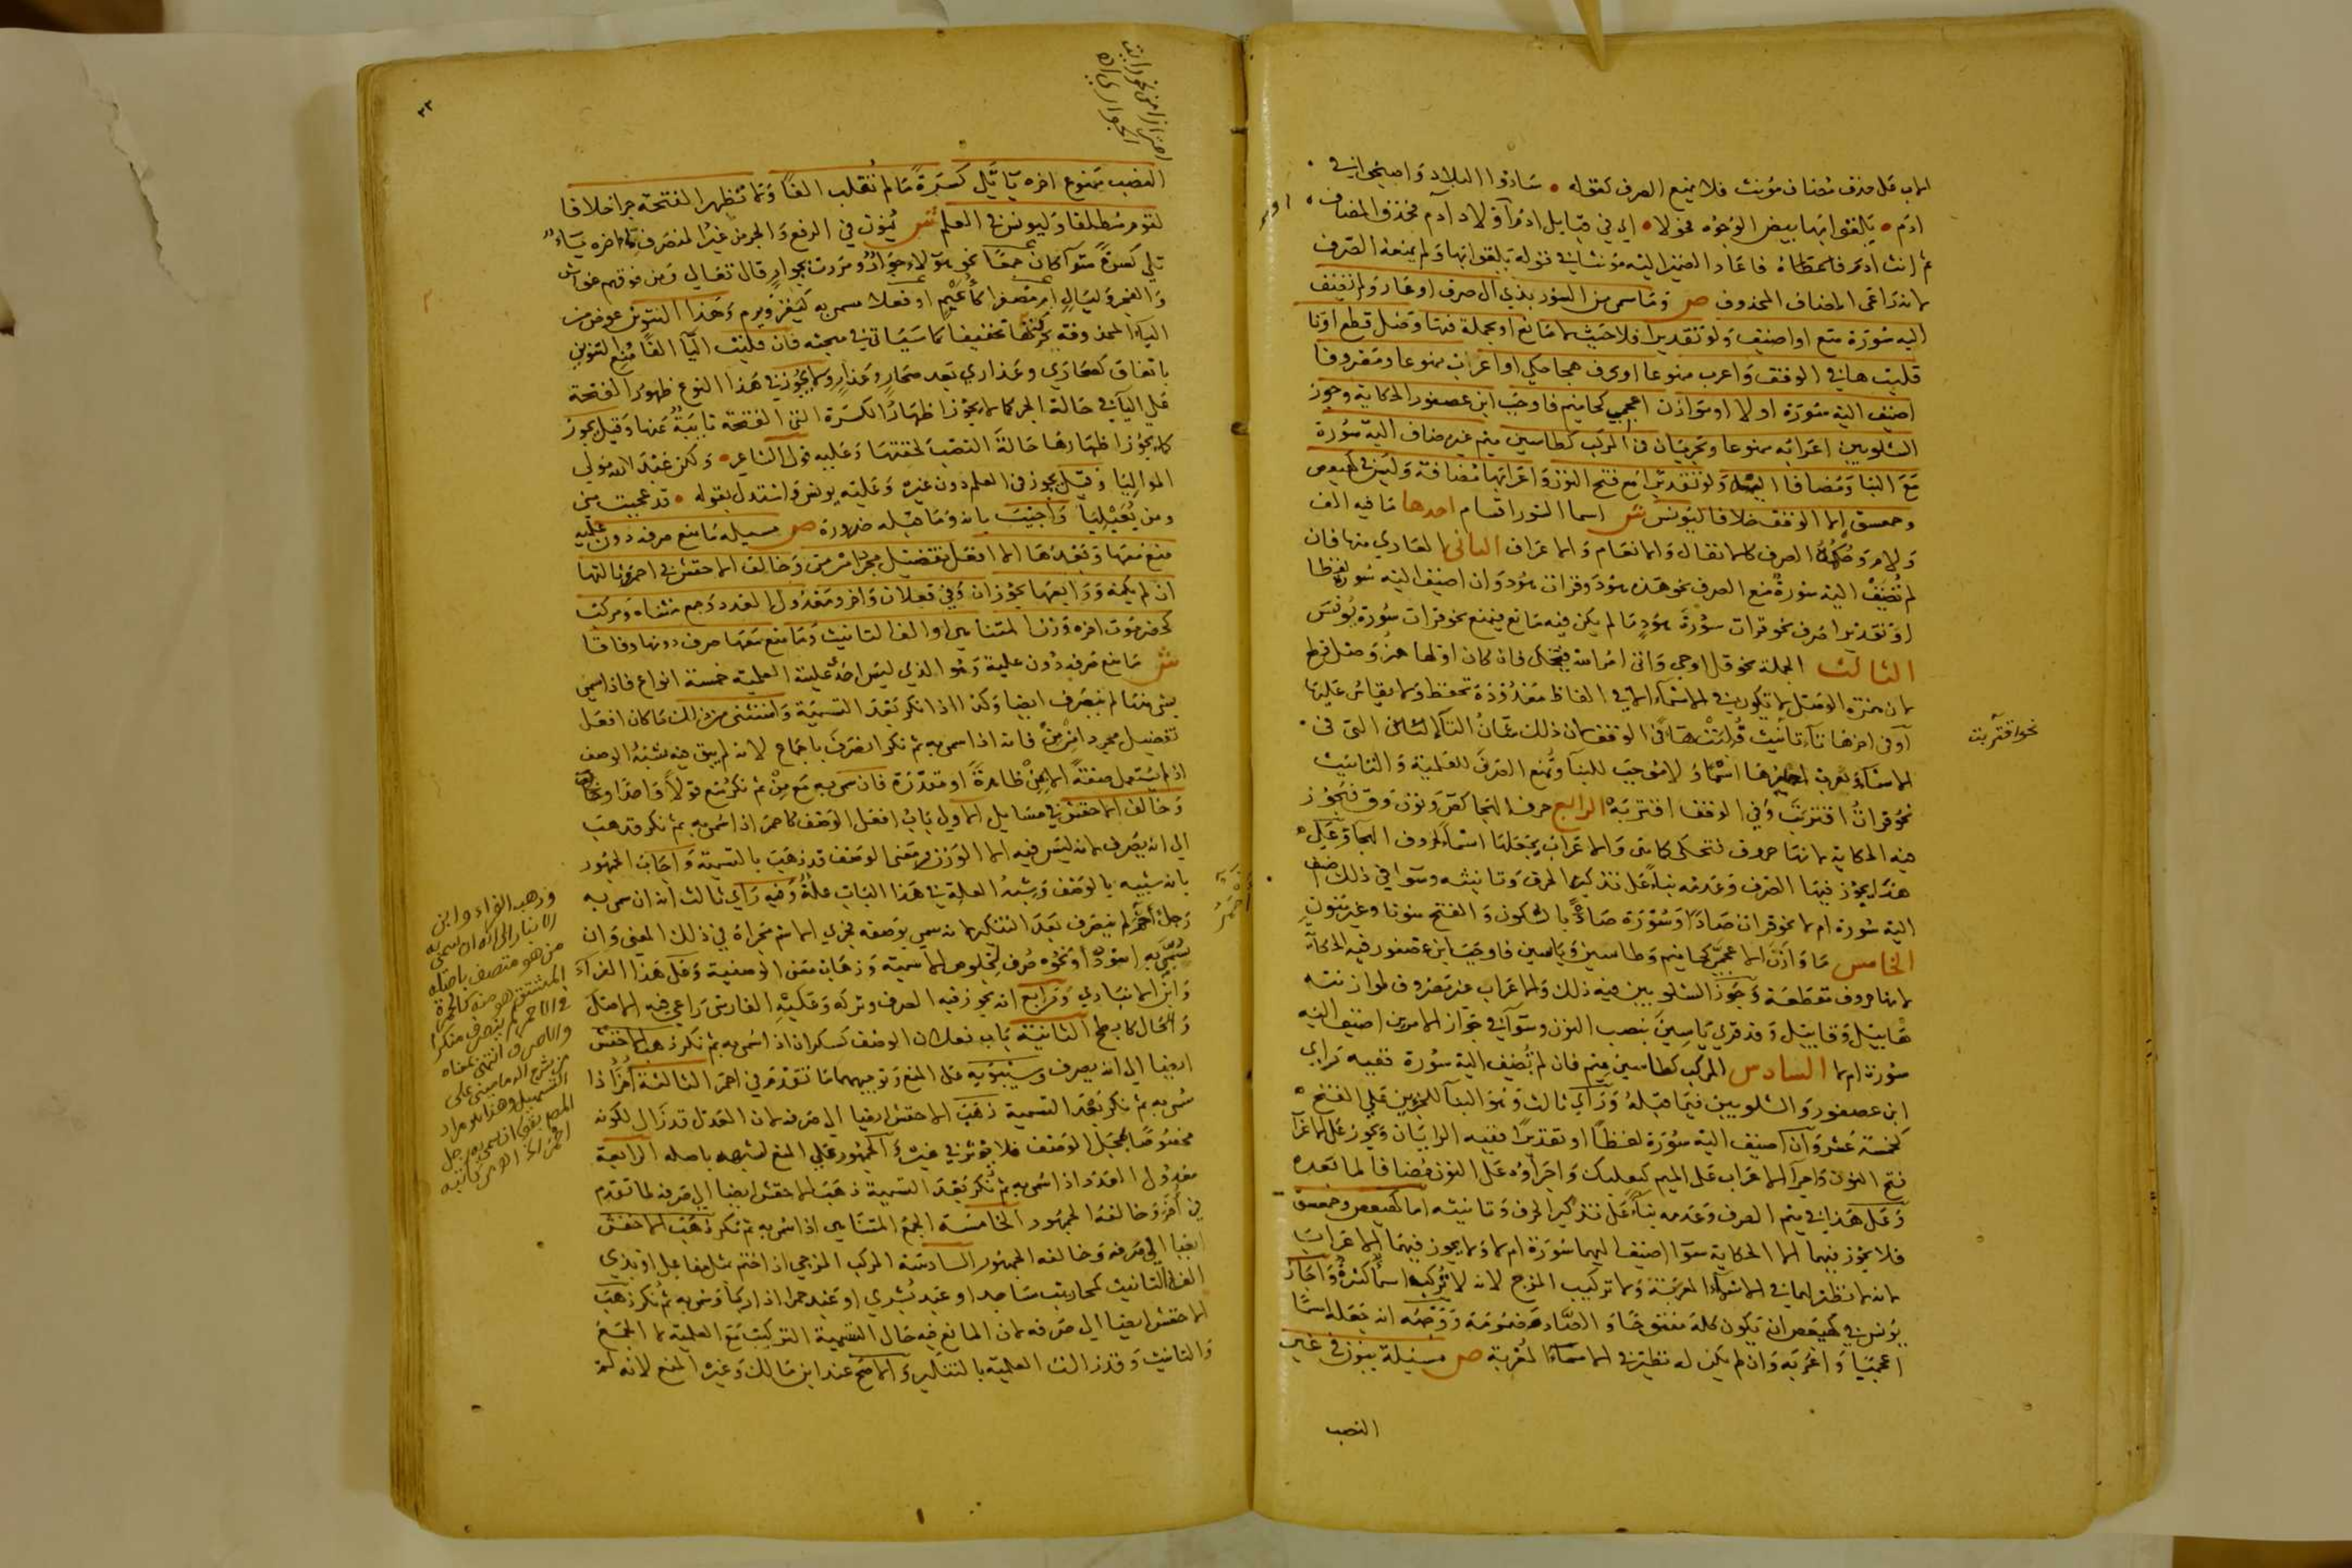 الاب على حذف مضاف مؤنث فلا يمنع الصرف كقوله • سادوا البلاد واصبحوا في •
ادم • بلغوا بها بيض الوجوه فحولا • اي في قبايل ادم او اولاد آدم فحذف المضاف
ثم انث ادم فاعطاه فاعاد الضمير اليه مؤنثا في قوله بلغوا بها ولم يمنعه الصرف
لانه راعى المضاف المحذوف ص وما سمي من السور بذي ال صرف او عار ولم تضف
اليه سورة منع او اضيف ولو تقديرا فلا حيث لا مانع او بجملة فيها وصل قطع او تا
قلبت ها في الوقف واعرب ممنوعا او بحرف هجا حكي او اعرب ممنوعا ومصروفا
اضيف اليه سورة او لا او بموازن اعجمي كحاميم فاوجب ابن عصفور الحكاية وجوز
الشلوبين اعرابه ممنوعا ويجريان في المركب كطاسين ميم غير مضاف اليه سورة
مع البنا ومضافا اليه ولو تقديرا مع فتح النون واعرابها مضافة وليس في كهيعص
وحمعسق الا الوقف خلافا ليونس ش اسما السور اقسام احدها ما فيه الف
ولام وحكمه الصرف كالانفال والانعام والاعراف الثاني العاري منها فان
لم تضف اليه سورة منع الصرف نحو هذه هود وقرات هود وان اضيف اليه سورة لفظا
او تقديرا صرف نحو قرات سورة هود ما لم يكن فيه مانع فيمنع نحو قرات سورة يونس
الثالث الجملة نحو قل اوحي واتى امر الله فتحكى فان كان اولها همزة وصل قطع
لان همزة الوصل لا تكون في الاسماء الا في الفاظ معدودة تحفظ ولا يقاس عليها
او في اخرها تاء تانيث قلبت هاء في الوقف لان ذلك شان التاء التي في
الاسماء وتعرب لمصيرها اسماء لا موجب للبناء ويمنع الصرف للعلمية والتانيث
نحو قرات اقتربت وفي الوقف اقتربه الرابع حرف الهجا كص ون وق فتجوز
فيه الحكاية لانها حروف فتحكى كما هي والاعراب بجعلها اسماء لحروف الهجا وعلى
هذا يجوز فيها الصرف وعدمه بناء على تذكير الحرف وتانيثه وسوا في ذلك اضيف
اليه سورة ام لا نحو قرات صاد وسورة صاد بالسكون والفتح منونا وغير منون
الخامس ما وازن الاعجمي كحاميم وطاسين وياسين فاوجب ابن عصفور فيه الحكاية
لانها حروف مقطعة وجوز الشلوبين فيه ذلك والاعراب غير مصروف لموازنته
هابيل وقابيل وقد قري ياسين بنصب النون وسوا في جواز الامرين اضيف اليه
سورة ام لا السادس المركب كطاسين ميم فان لم تضف اليه سورة ففيه رايي
ابن عصفور والشلوبين فيما قبله ورأي ثالث وهو البنا للجزءين على الفتح
كخمسة عشر وان اضيف اليه سورة لفظا او تقديرا ففيه الرايان ويجوز على الاعراب
فتح النون واجراء الاعراب على الميم كبعلبك واجراؤه على النون مضافا لما بعده
وعلى هذا في ميم الصرف وعدمه بناء على تذكير الحرف وتانيثه اما كهيعص وحمعسق
فلا يجوز فيهما الا الحكاية سوا اضيف اليهما سورة ام لا ولا يجوز فيهما الاعراب
لانه لا نظير لهما في الاسماء المعربة ولا تركيب المزج لانه لا تركب اسما كثيرة واجاز
يونس في كهيعص ان تكون كلمة مفتوحة والصاد مضمومة ووجهه انه جعله اسما
اعجميا واعربه وان لم يكن له نظير في الاسماء المعربة ص مسيلة ينون في غير
النصب
نحو اقتربت
٣٣
النصب ممنوع اخره يا تلي كسرة ما لم تقلب الفا ولا تظهر الفتحة جرا خلافا
لقوم مطلقا وليونس في العلم ش ينون في الرفع والجر من غير المنصرف ما اخره ياء
تلي كسرة سوا كان جمعا نحو هولاء جوار ومررت بجوار قال تعالى ومن فوقهم غواش
والفجر وليال ام مصغرا كأعيم او فعلا سمي به كيغز ويرم وهذا التنوين عوض من
الياء المحذوفة بحركتها تخفيفا كما سياتي في مبحثه فان قلبت اليا الفا منع التنوين
باتفاق كصحارى وعذارى بعد صحار وعذار ولا يجوز في هذا النوع ظهور الفتحة
على اليا في حالة الجر كما لا يجوز اظهار الكسرة التي الفتحة نايبة عنها وقيل يجوز
كما يجوز اظهارها حالة النصب لخفتها وعليه قول الشاعر • ولكن عبد الله مولى
المواليا وقيل يجوز في العلم دون غيره وعليه يونس واستدل بقوله • قد عجبت مني
ومن يعيليا واجيب بانه وما قبله ضرورة ص مسيله ما منع صرفه دون علمية
منع معها وبعدها الا افعل تفضيل مجردا من من وخالف الاخفش في احمر وثالثها
ان لم يكنه ورابعها يجوزان وفي فعلان واخر ومعدول العدد وجمع متناه ومركب
كحضرموت اخره وزن المتناهي او الف التانيث وما منع معها صرف دونها وفاقا
ش ما منع صرفه دون علمية وهو الذي ليس احد علتيه العلمية خمسة انواع فاذا سمي
بشي منها لم ينصرف ايضا وكذا اذا نكر بعد التسمية واستثنى من ذلك ما كان افعل
تفضيل مجردا من من فانه اذا سمي به ثم نكر انصرف باجماع لانه لم يبق فيه شبه الوصف
اذ لم يستعمل صفة الا بمن ظاهرة او مقدرة فان سمي به مع من ثم نكر منع قولا واحدا
وخالف الاخفش في مسايل الاولى باب افعل الوصف كاحمر اذا سمي به ثم نكر فذهب
الى انه يصرف لانه ليس فيه الا الوزن ومعنى الوصف قد ذهب بالتسمية واجاب الجمهور
بانه شبيه بالوصف وشبه العلة في هذا الباب علة وفيه راي ثالث انه ان سمي به
رجل احمر لم ينصرف بعد التنكير لانه سمي بوصفه فجري الاسم مجراه في ذلك المعنى وان
سمي به اسود او نحوه صرف لخلوص الاسمية وذهاب معنى الوصفية وعلى هذا الفراء
وابن الانباري ورابع انه يجوز فيه الصرف وتركه وعليه الفارسي راعى فيه الاصل
والحال كابطح الثانية باب فعلان الوصف كسكران اذا سمي به ثم نكر ذهب الاخفش
ايضا الى انه يصرف وسيبويه على المنع وتوجيههما ما تقدم في احمر الثالثة أخر اذا
سمي به ثم نكر بعد التسمية ذهب الاخفش ايضا الى صرفه لان العدل قد زال لكونه
مخصوصا بمحل الوصف فلا يؤثر في غيره والجمهور على المنع لشبهه باصله الرابعة
معدول العدد اذا سمي به ثم نكر بعد التسمية ذهب الاخفش ايضا الى صرفه لما تقدم
في أخر وخالفه الجمهور الخامسة الجمع المتناهي اذا سمي به ثم نكر ذهب الاخفش
ايضا الى صرفه وخالفه الجمهور السادسة المركب المزجي اذا ختم بمثل مفاعل او بذي
الف التانيث كمحاريب مساجد او عبد بشرى او عبد حمرا اذا ركبا وسمي به ثم نكر ذهب
الاخفش ايضا الى صرفه لان المانع فيه حال التسمية التركيب مع العلمية لا الجمع
والتانيث وقد زالت العلمية بالتنكير والاصح عند ابن مالك وغيره المنع لانه
وذهب الفراء وابن
الانباري الى انه ان سمي به
من هو متصف باصله
المشتق هو منه كالحمرة
في الاحمر لم ينصرف منكرا
والا صرف انتهى معناه
من شرح الدماميني على
التسهيل وهذا المراد